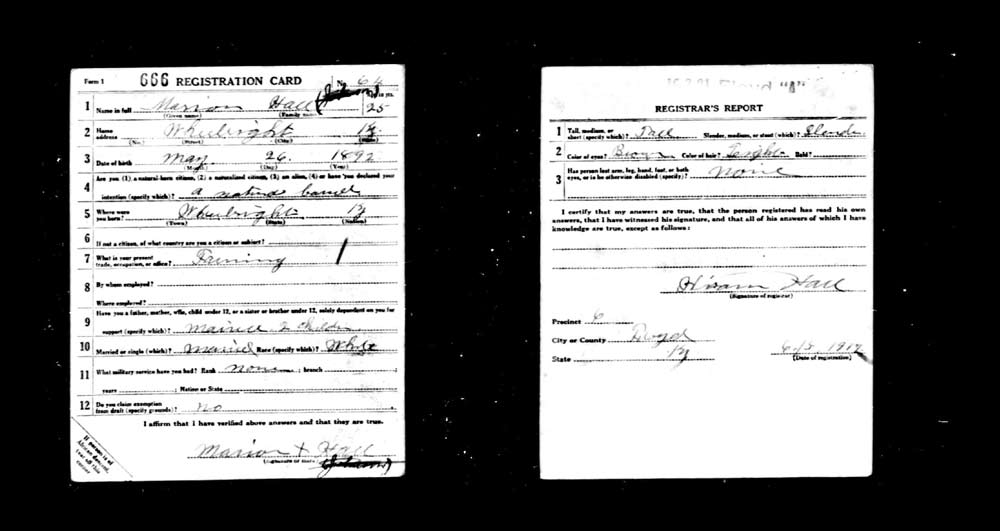 Form 1 666 REGISTRATION CARD No. 64
1 Name in full Marion Hall Age in yrs. 25
(Given name) (Family name)
2 Home address Wheelright Ky
(No.) (Street) (City) (State)
3 Date of birth May 26 1892
(Month) (Day) (Year)
4 Are you (1) a natural-born citizen, (2) a naturalized citizen, (3) an alien, (4) or have you declared your
intention (specify which)? a natural
5 Where were you born? Wheelright Ky
(Town) (State) (Nation)
6 If not a citizen, of what country are you a citizen or subject?
7 What is your present trade, occupation, or office? Farming
8 By whom employed?
Where employed?
9 Have you a father, mother, wife, child under 12, or a sister or brother under 12, solely dependent on you for
support (specify which)? 2 Children
10 Married or single (which)? Race (specify which)? White
11 What military service have you had? Rank none ; branch
years ; Nation or State
12 Do you claim exemption from draft (specify grounds)? No
I affirm that I have verified above answers and that they are true.
Marion X Hall
(Signature or mark)
If person is of African descent, tear off this corner
REGISTRAR'S REPORT
1 Tall, medium, or short (specify which)? Tall Slender, medium, or stout (which)? Slender
2 Color of eyes? Color of hair? Light Bald?
3 Has person lost arm, leg, hand, foot, or both eyes, or is he otherwise disabled (specify)? None
I certify that my answers are true, that the person registered has read his own
answers, that I have witnessed his signature, and that all of his answers of which I have
knowledge are true, except as follows:
Hiram Hall
(Signature of registrar)
Precinct 6
City or County Floyd
State Ky 6/5 1917
(Date of registration)